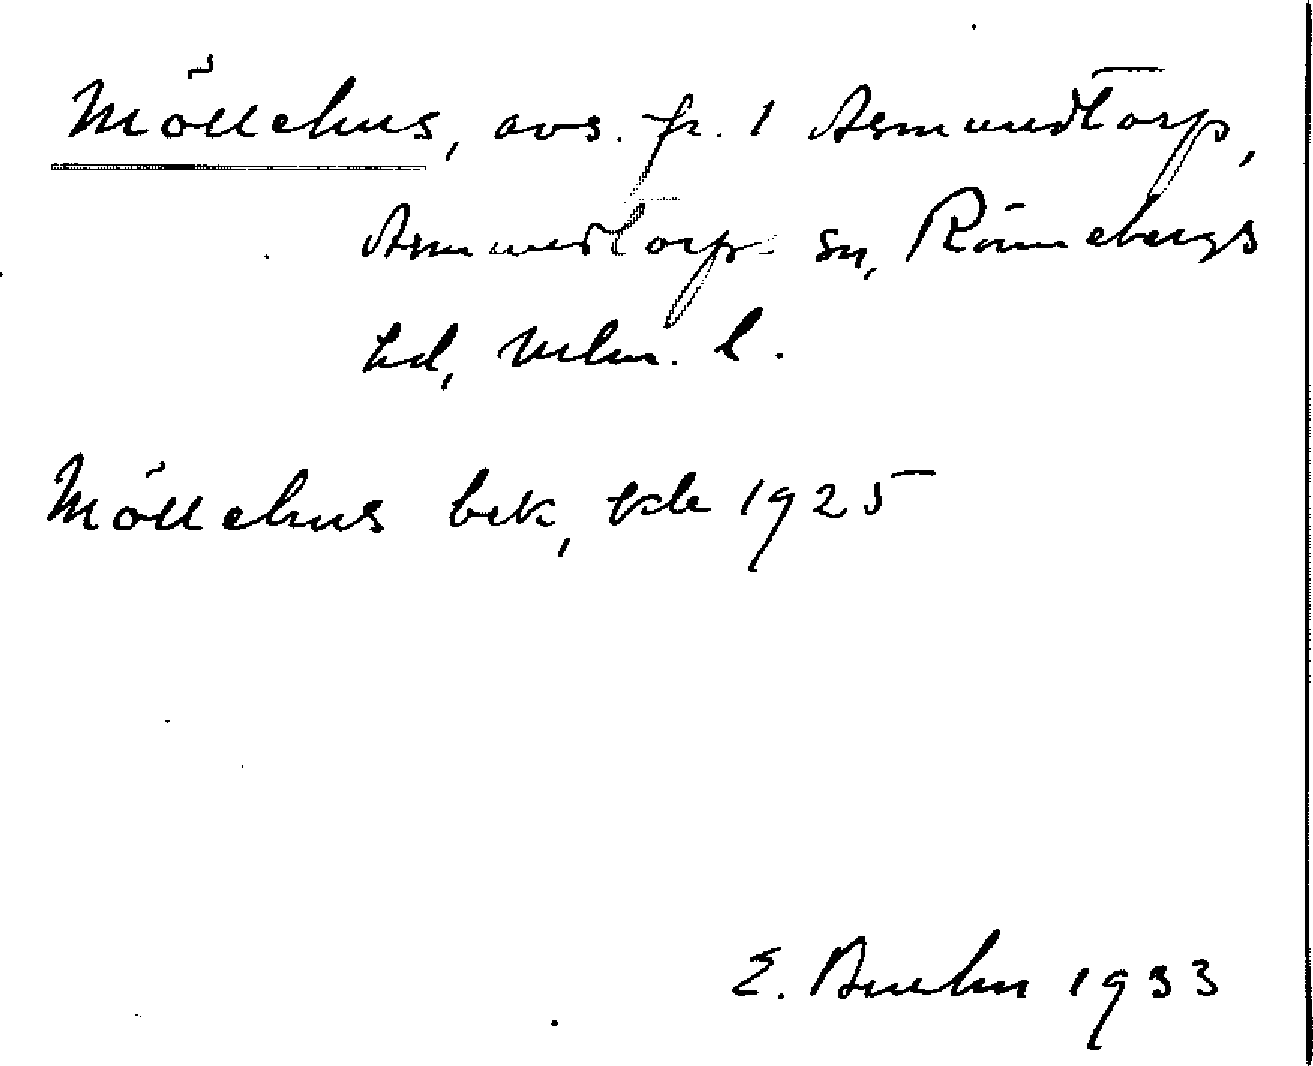 Möllehus, avs. fr. 1 Asmundtorp,
Asmundtorps sn, Rönnebergs
hd, Mlm. l.
Möllehus bek, tkb 1925
E. 1933